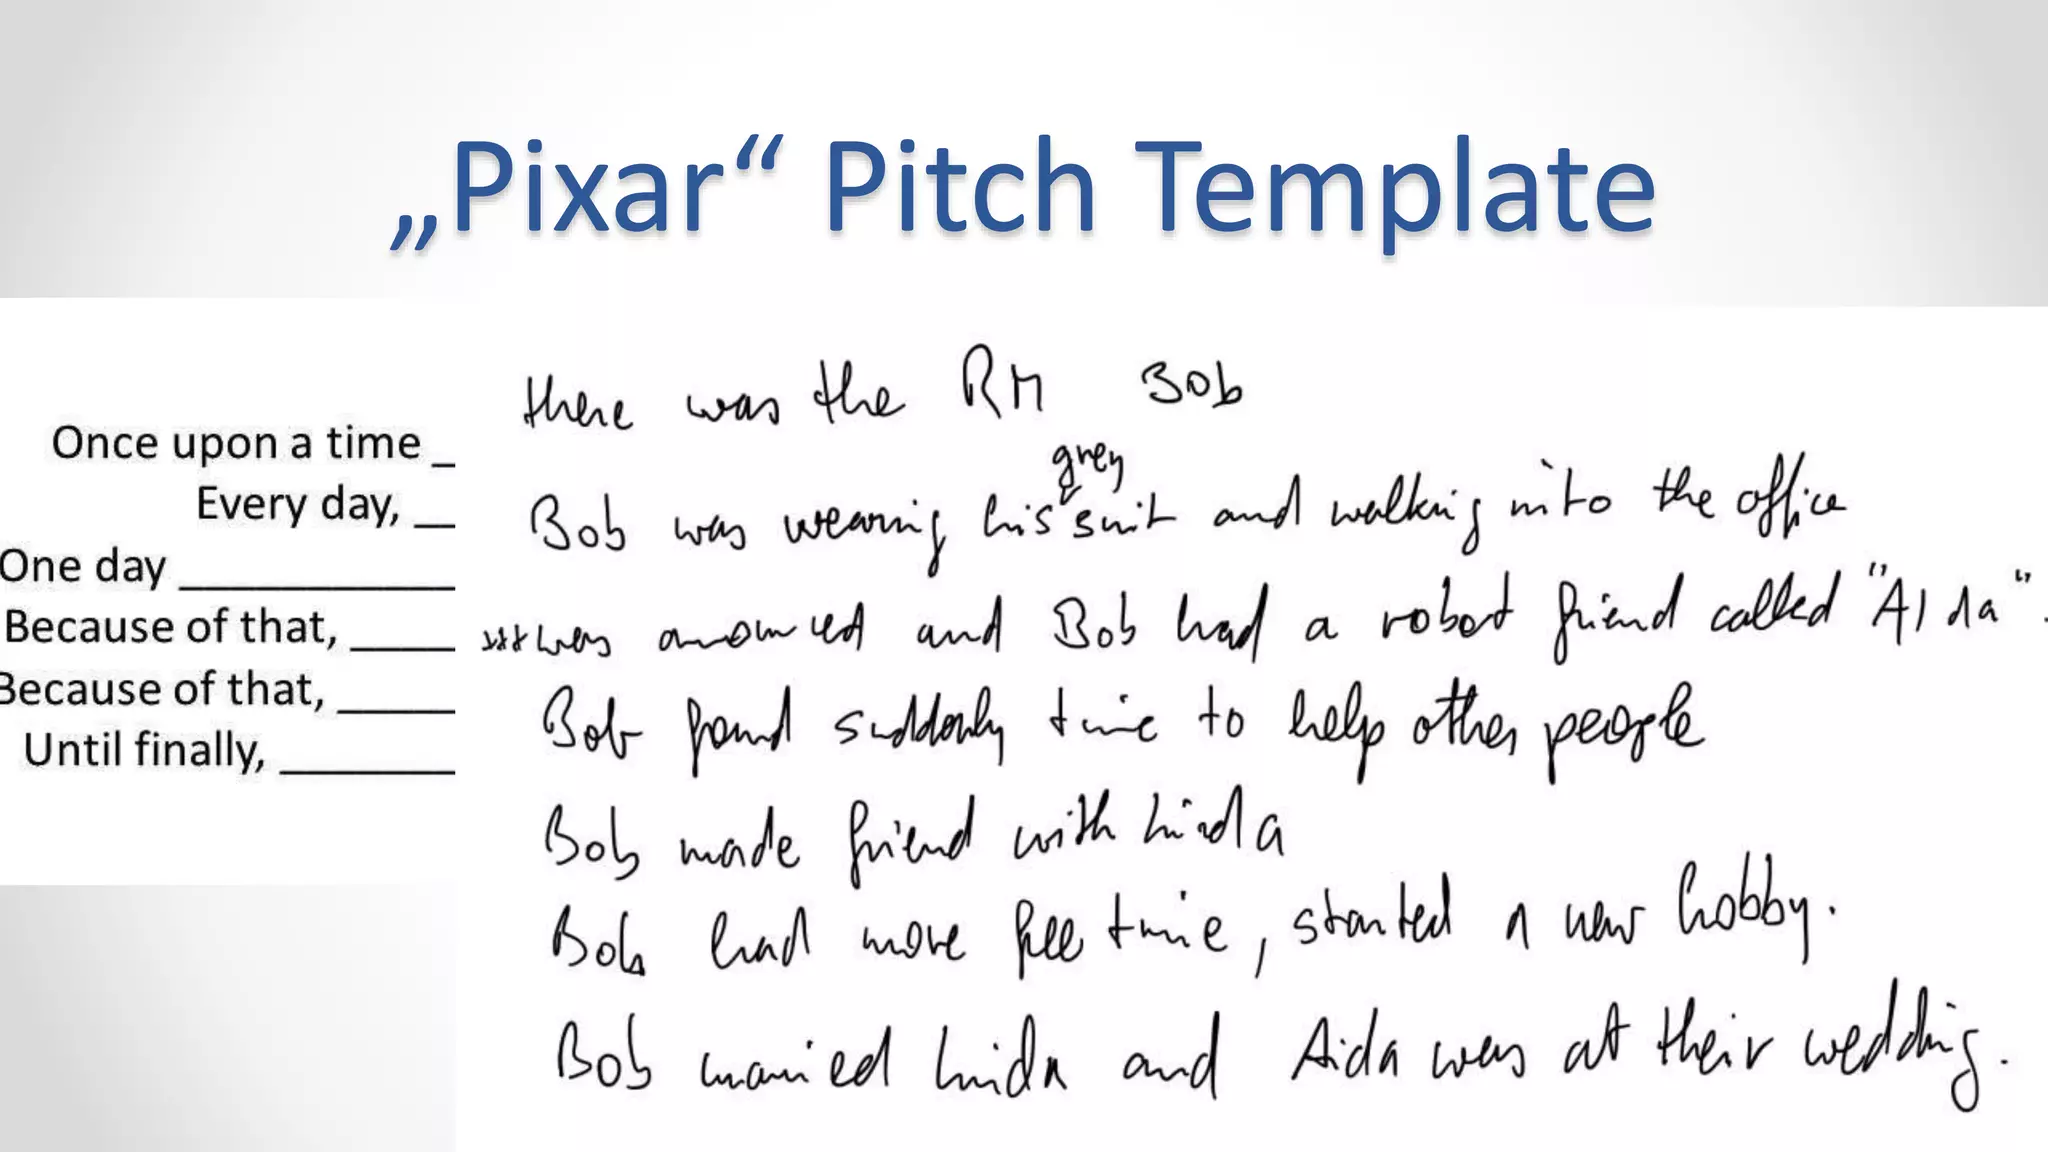 „Pixar“ Pitch Template
Once upon a time _
Every day, __
One day ___________
Because of that, ____
Because of that, _____
Until finally, _______
there was the RM Bob
grey
Bob was wearing his suit and walking into the office
was and Bob had a robot friend called "AI da".
Bob found suddenly time to help other people
Bob made friend with Linda
Bob had more free time, started a new hobby.
Bob married Linda and Aida was at their wedding.